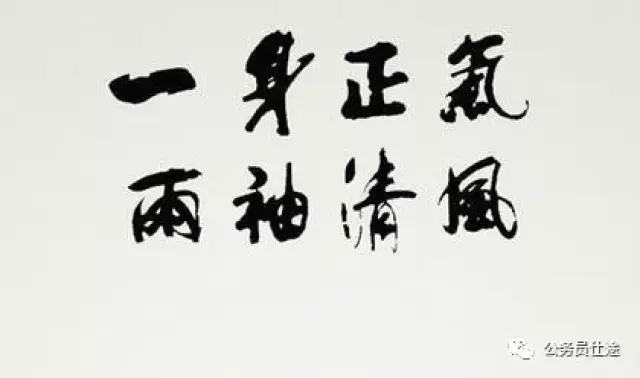 一身正氣
兩袖清風
公务员仕途